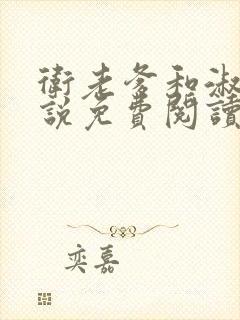 衛老爹和淑
說免費閱讀
奕嘉